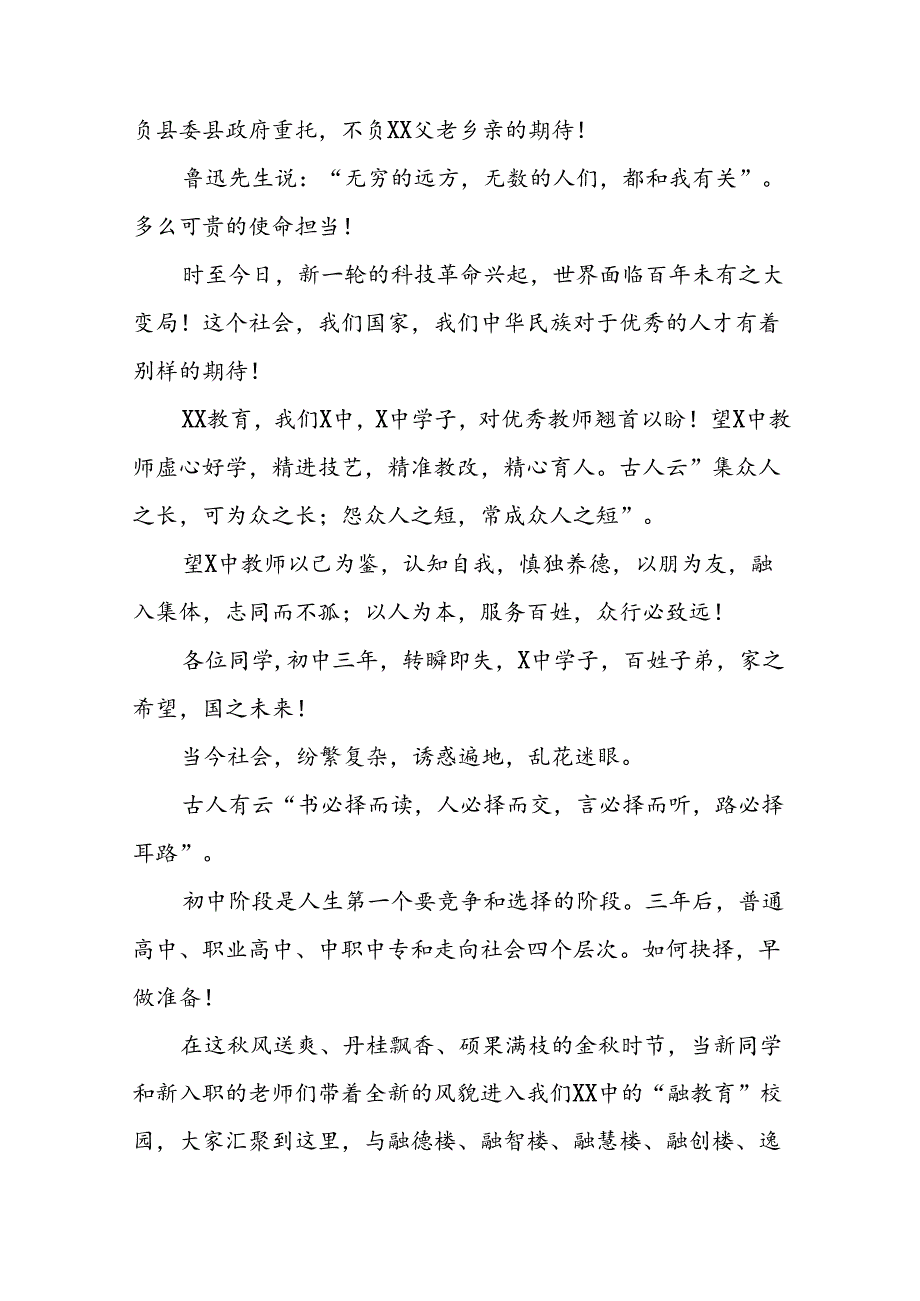 负县委县政府重托，不负XX父老乡亲的期待！
鲁迅先生说：“无穷的远方，无数的人们，都和我有关”。
多么可贵的使命担当！
时至今日，新一轮的科技革命兴起，世界面临百年未有之大
变局！这个社会，我们国家，我们中华民族对于优秀的人才有着
别样的期待！
XX教育，我们X中，X中学子，对优秀教师翘首以盼！望X中教
师虚心好学，精进技艺，精准教改，精心育人。古人云”集众人
之长，可为众之长；怨众人之短，常成众人之短”。
望X中教师以己为鉴，认知自我，慎独养德，以朋为友，融
入集体，志同而不孤；以人为本，服务百姓，众行必致远！
各位同学,初中三年，转瞬即失，X中学子，百姓子弟，家之
希望，国之未来！
当今社会，纷繁复杂，诱惑遍地，乱花迷眼。
古人有云“书必择而读，人必择而交，言必择而听，路必择
耳路”。
初中阶段是人生第一个要竞争和选择的阶段。三年后，普通
高中、职业高中、中职中专和走向社会四个层次。如何抉择，早
做准备！
在这秋风送爽、丹桂飘香、硕果满枝的金秋时节，当新同学
和新入职的老师们带着全新的风貌进入我们XX中的“融教育”校
园，大家汇聚到这里，与融德楼、融智楼、融慧楼、融创楼、逸